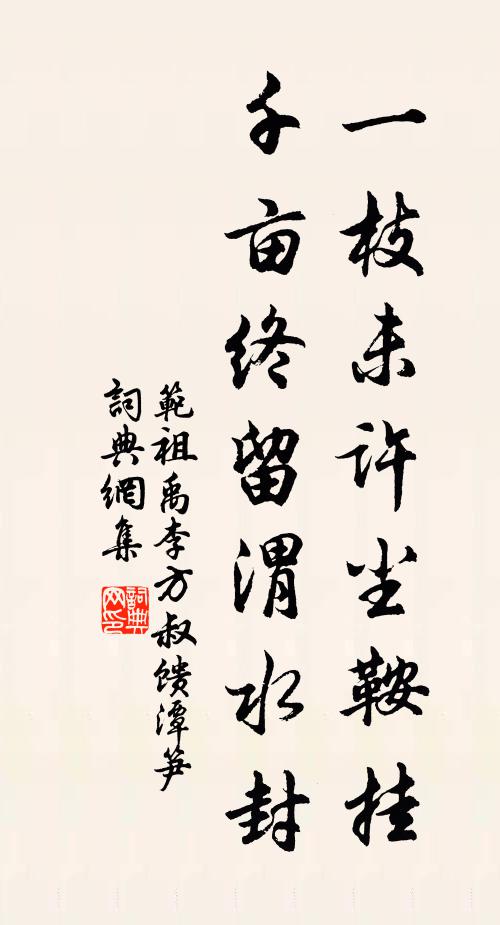 一枝未许尘鞍挂
千亩终留渭水封
範祖禹李方叔馈潭笋
詞典網集
詞典网印